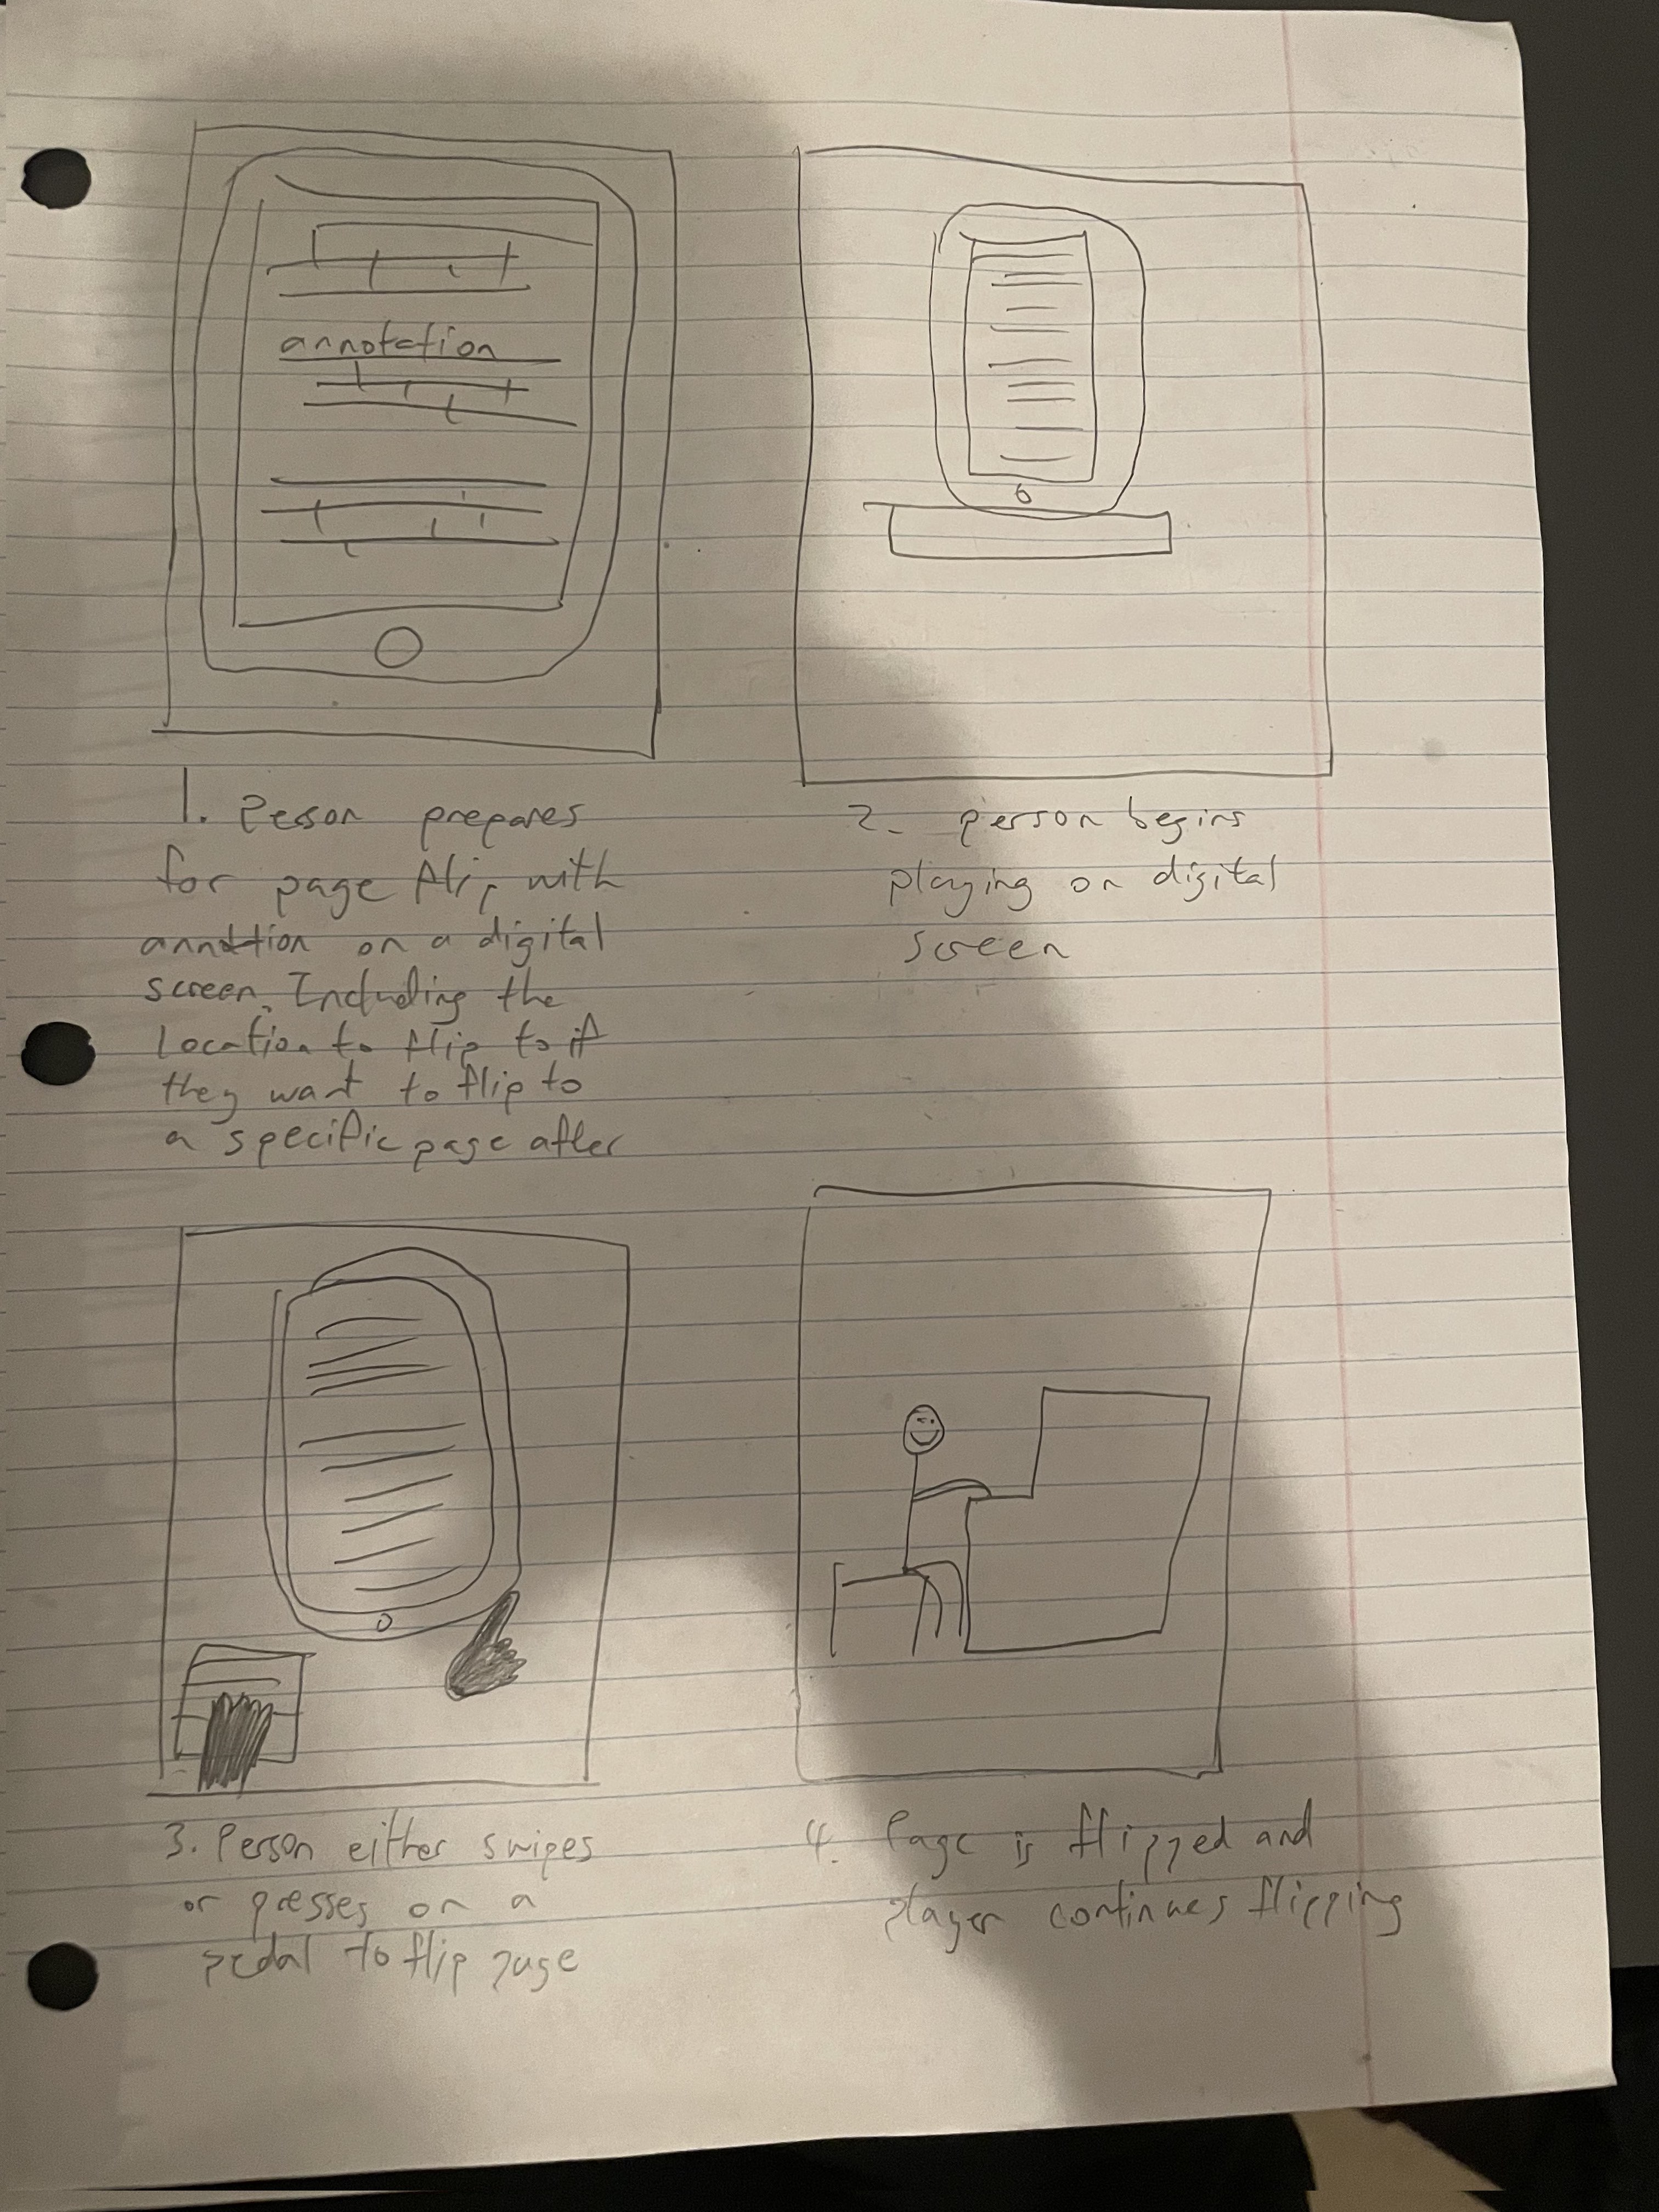 annotation
1. Person prepares
for page flip with
annotion on a digital
screen. Including the
Location to flip to if
they want to flip to
a specific page after
2. person begins
playing on digital
screen
3. Person either swipes
or presses on a
pedal to flip page
4. Page is flipped and
player continues flipping